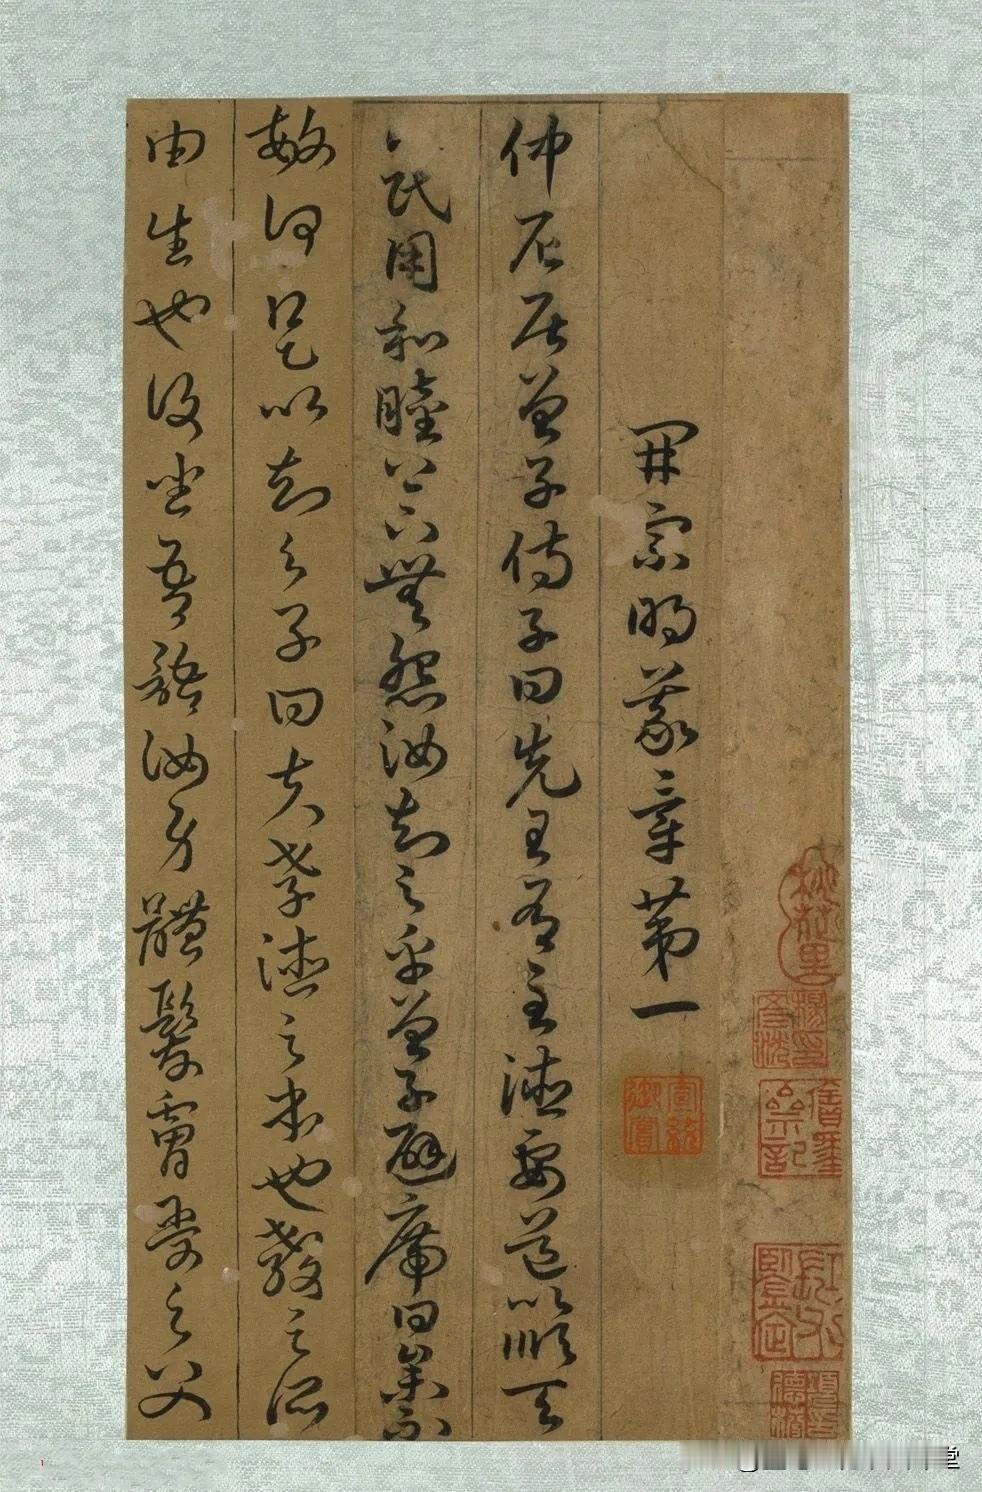 開宗明義章第一
仲尼居曾子侍子曰先王有至德要道以順天
下民用和睦上下無怨汝知之乎曾子避席曰參不
敏何足以知之子曰夫孝德之本也教之所
由生也復坐吾語汝身體髮膚受之父
宣統
堂